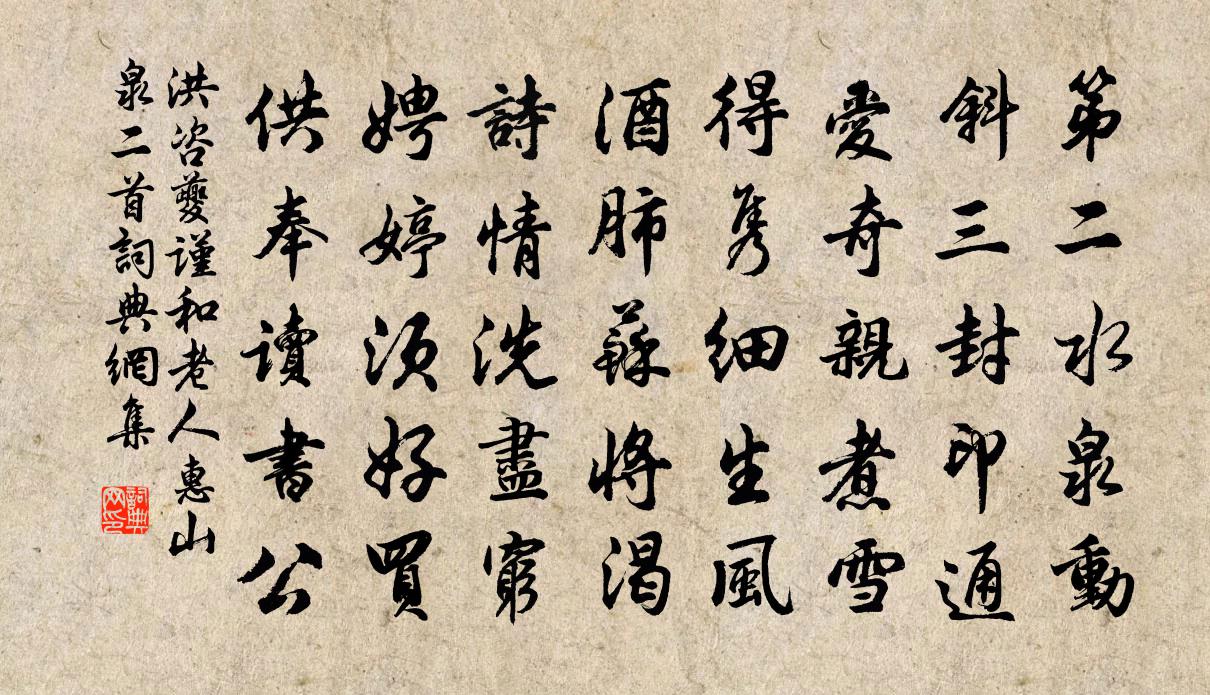 第二水泉動
斜三封印通
愛奇親煮雪
得雋細生風
酒肺蘇將渴
詩情洗盡窮
娉婷須好買
供奉讀書公
洪咨夔謹和老人惠山
泉二首詞典網集
詞典
网印